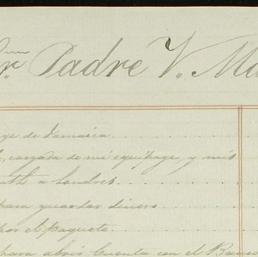 Sr. Padre V. Ma
je de Jamaica
cargada de mi equipage, y mis
th a Londres
para guardar dinero
por el paquete
para abrir Cuenta con el Banco